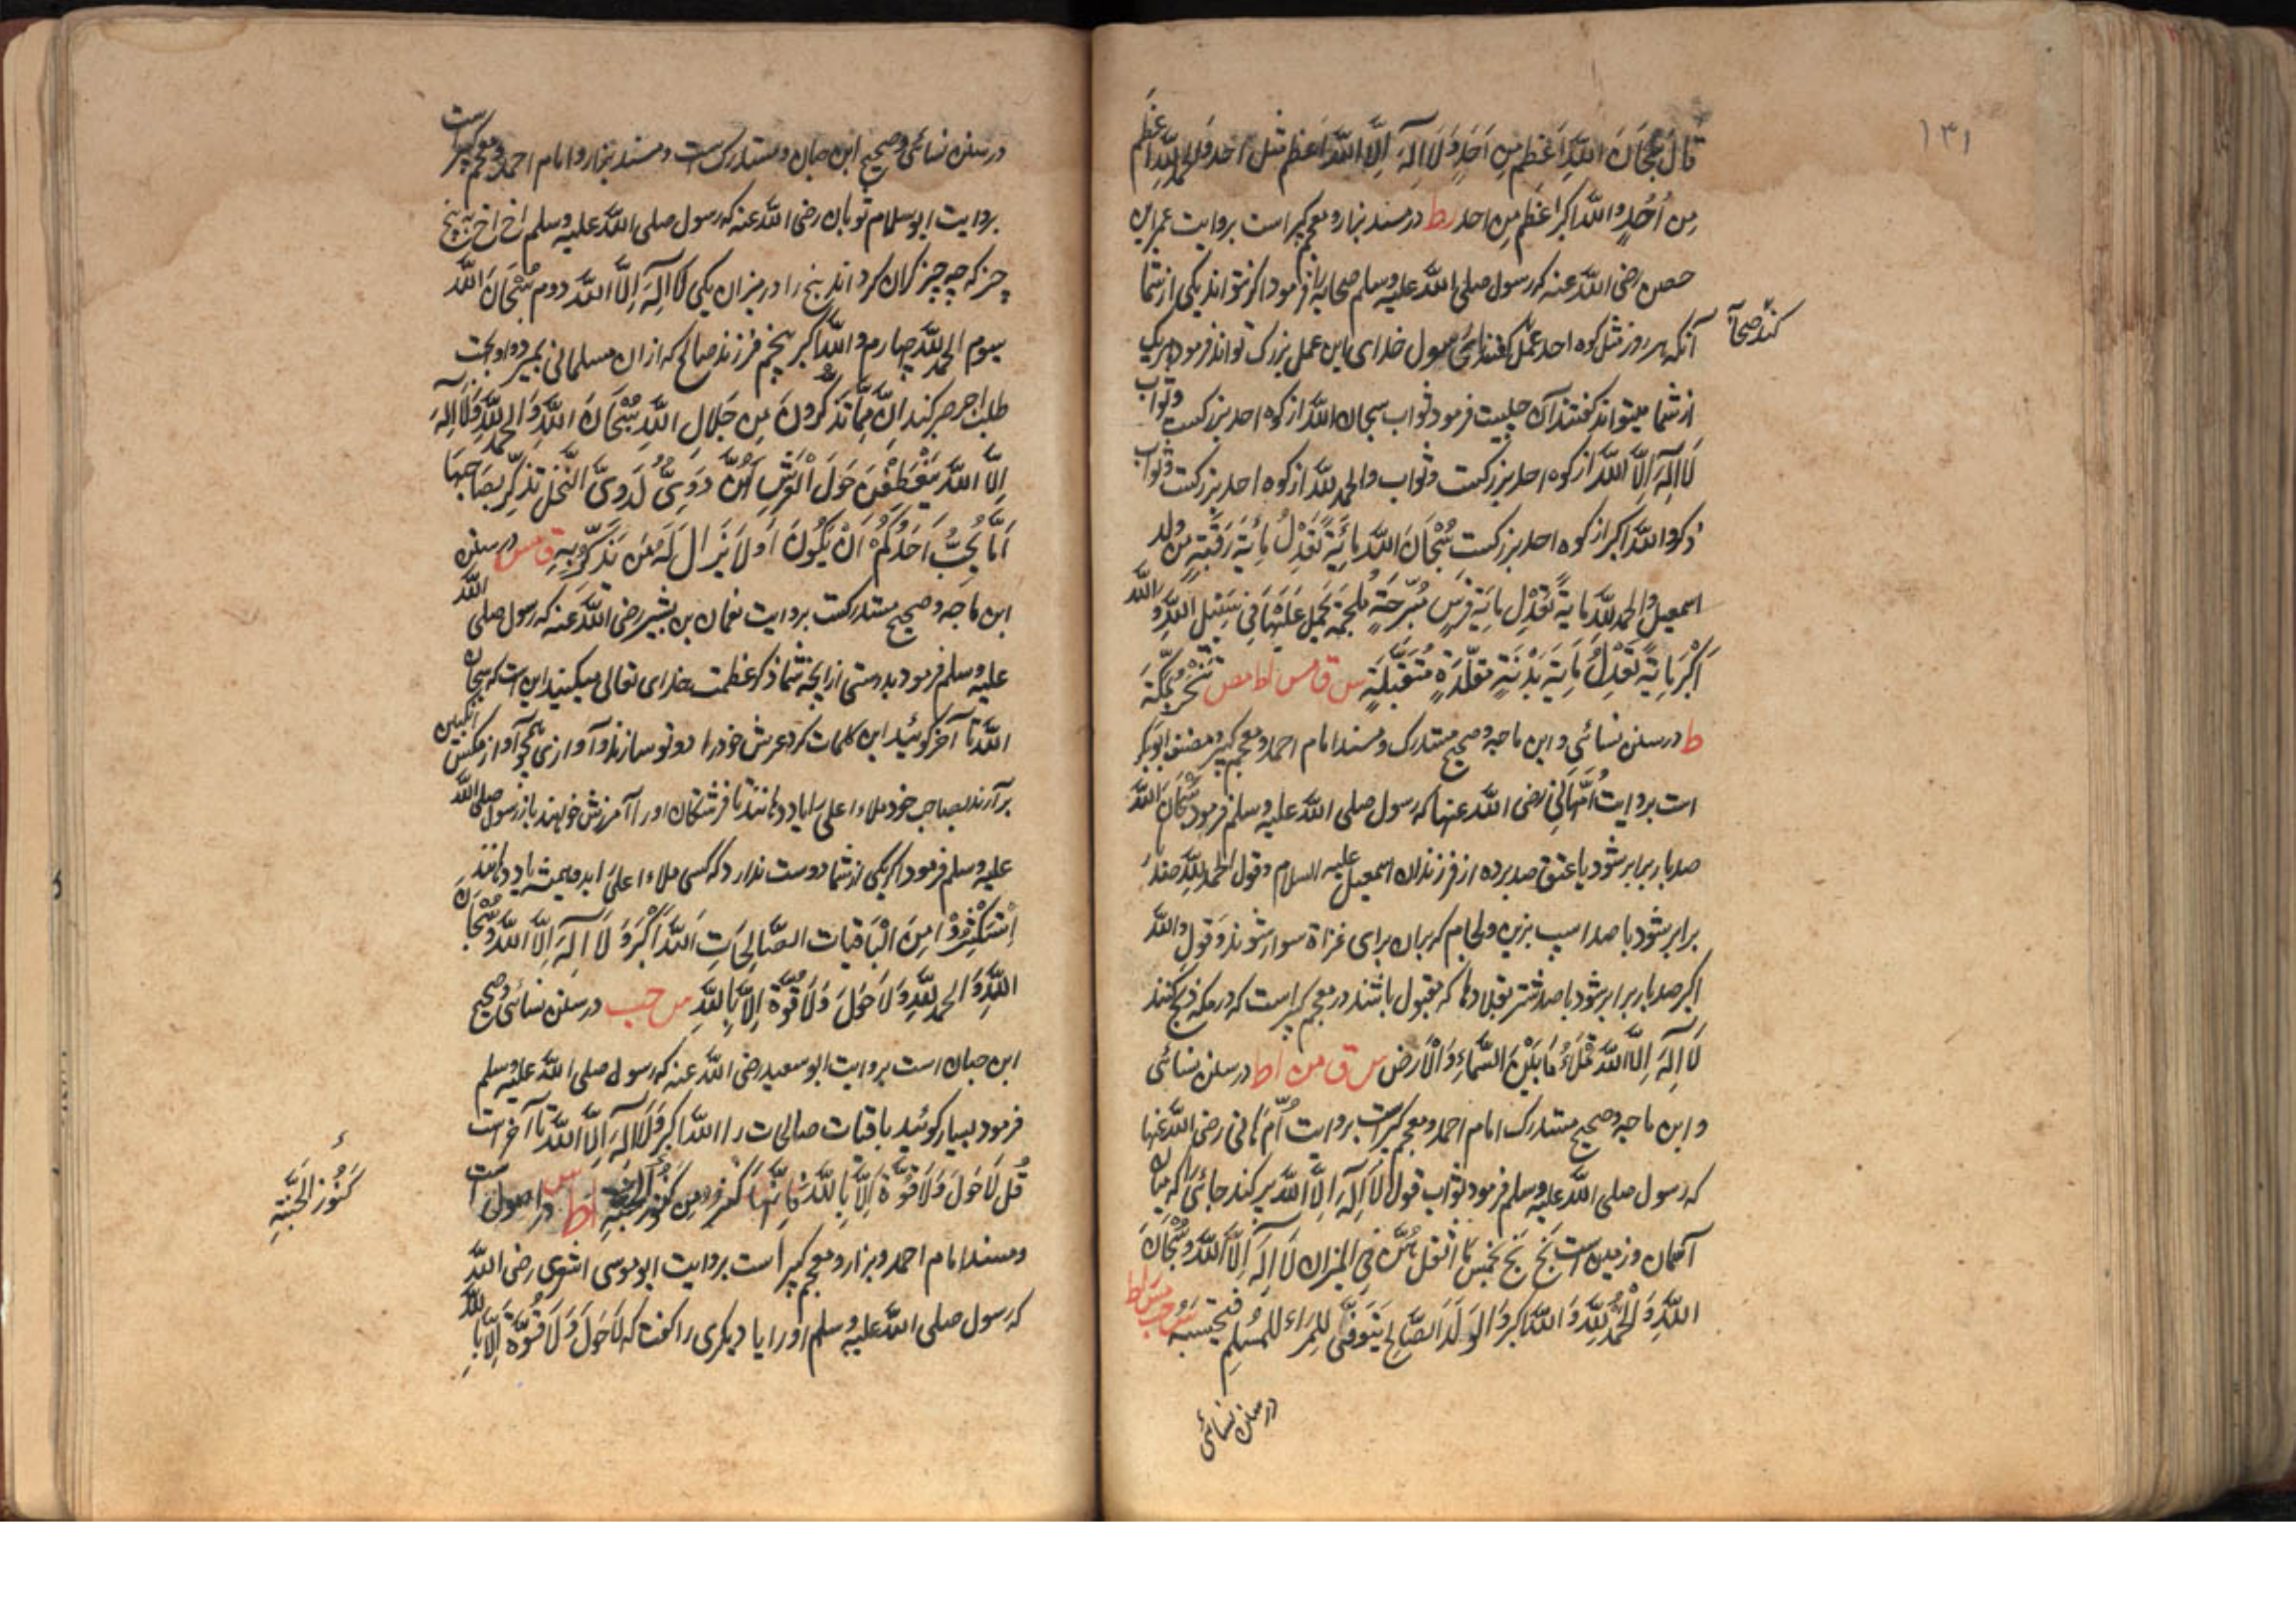 ١٣١
قال سُبْحَانَ اللّٰهِ اَعْظَم مِن اُحَدٍ وَ لَا اِلٰهَ اِلَّا اللّٰه اَعظم مثل احد و الحمد لِلّٰهِ اعظم
مِن اُحُدٍ و اللّٰه اکبر اعْظَم مِن احد رط در مسند بزار و معجم کبیر است بروایت عمران
حصین رضی اللّٰه عنه که رسول صلی اللّٰه علیه وسلم صحابه را فرمود اکر نتواند یکی از شما
آنکه هر روز مثل کوه احد عمل کفتند رسول خدای این عمل بزرک تواند فرمود هریک
کند صحابه
از شما میتواند کفتند آن چیست فرمود ثواب سبحان اللّٰه از کوه احد بزرکست و ثواب
لَا اِلٰهَ اِلَّا اللّٰه از کوه احد بزرکست و ثواب والحمد للّٰه از کوه احد بزرکست و ثواب
ذکر و اللّٰه اکبر از کوه احد بزرکست سُبْحَانَ اللّٰه مِائَةً تَعْدِلُ مِائَةَ رَقَبَةٍ مِن ولد
اسمعیل و الحمد للّٰهِ مایةً تَعْدِل مایَةَ فرَسٍ مُسَرَّجَةٍ مُلجَمَةٍ یحمل عَلَیْهَا فِی سَبِیْلِ اللّٰهِ وَ اللّٰه
اَکْبَر مِایَةً تَعْدِلُ مِایَةَ بَدَنَةٍ مقَلَّدَةٍ مُتَقَبَّلَةٍ س ق مس اط مص تُنْحَرُ بِمَکَّةَ
ط در سنن نسائی و ابن ماجه و صحیح مستدرک و مسند امام احمد و معجم کبیر و مصنف ابوبکر
است بروایت اُمِّ هَانِی رضی اللّٰه عنها که رسول صلی اللّٰه علیه وسلم فرمود سُبْحَان اللّٰه
صد بار برابر شود با عتق صد برده از فرزندان اسمعیل علیه السلام و قول الحمد لِلّٰهِ صد بار
برابر شود با صد اسپ بزین و لجام که بران برای غزاة سوار شوند و قول واللّٰه
اکبر صد بار برابر شود با صد شتر بقلادها که مقبول باشند در معجم کبیر است که در مکه ذبح کنند
لَا اِلٰهَ اِلَّا اللّٰه تَمْلَاُ مَا بَیْنَ السَّمَاءِ وَ الْاَرضِ س ق مس اط در سنن نسائی
و ابن ماجه و صحیح مستدرک امام احمد و معجم کبیر است بروایت اُمّ هَانی رضی اللّٰه عنها
که رسول صلی اللّٰه علیه وسلم فرمود ثواب قول لَا اِلٰهَ اِلَّا اللّٰه پر کند جائی را که میان
آسمان و زمین است بَخٍ بَخٍ بخمس مَا اثقل هُنَّ فِی المیزان لَا اِلٰهَ اِلَّا اللّٰه و سُبْحَانَ
اللّٰهِ وَ الْحَمْدُ لِلّٰهِ وَ اللّٰه اکبر وَ الولَدُ الصَّالِح یتوفّی لِلمَرء المُسْلِمِ فیحتسبه س حب مس ر اط
در سنن نسائی
در سنن نسائی و صحیح ابن حبان و مستدرکست و مسند بزار و امام احمد و معجم کبیر است
بروایت ابو سلام ثوبان رضی اللّٰه عنه که رسول صلی اللّٰه علیه وسلم اخ اخ به پنج
چیز که چه چیز کران کرداند پنج را در میزان یکی لَا اِلٰهَ اِلَّا اللّٰه دوم سُبْحَانَ اللّٰه
سیوم الحمد للّٰه چهارم و اللّٰه اکبر پنجم فرزند صالح که از ان مسلمانی بمیرد و او بجهت
طلب اجر صبر کند اِنَّ مِمَّا تَذکُرُونَ مِن جَلالِ اللّٰهِ سُبْحَانَ اللّٰهِ وَ الحمد لِلّٰهِ وَ لَا اِلٰهَ
اِلَّا اللّٰه یَنْعَطِفْنَ حَوْلَ الْعَرْشِ لَهُنَّ دَوِیٌّ کَدَوِیِّ النَّحْلِ تذکِّر بصَاحِبِهَا
اَمَا یُحِبُّ اَحَدُکُمْ اَنْ یَکُونَ اَو لَا یَزَال لَهُ مَن یَذَکِّرُ بِهِ ق مس در سنن
ابن ماجه و صحیح مستدرکست بروایت نعمان بن بشیر رضی اللّٰه عنه که رسول صلی اللّٰه
علیه وسلم فرمود بدرستی از انچه شما ذکر عظمت خدای تعالی میکنید این است که سبحان
اللّٰه تا آخر کوئید این کلمات کرد عرش خود را دو تو سازند و آوازی همچو آواز مکس انکبین
برآرند بصاحب خود ملاء اعلی یاد دهانند تا فرشتکان او را آمرزش خواهند باز رسول صلی اللّٰه
علیه وسلم فرمود اکر یکی از شما دوست ندارد که کسی ملاء اعلی ابد همیشه یاد دهانند
اِسْتَکْثِرُوْا مِنَ الْبَاقِیَات الصَّالِحَاتِ اَللّٰه اَکْبَر وَ لَا اِلٰهَ اِلَّا اللّٰه وَ سُبْحَانَ
اللّٰهِ وَ الحَمْد لِلّٰهِ وَ لَا حَوْلَ وَ لَا قُوَّةَ اِلَّا بِاللّٰهِ س حب در سنن نسائی و صحیح
ابن حبان است بروایت ابو سعید رضی اللّٰه عنه که رسول صلی اللّٰه علیه وسلم
فرمود بسیار کوئید باقیات صالحات را اللّٰه اکبر وَ لَا اِلٰهَ اِلَّا اللّٰه تا آخر است
قُل لَا حَوْلَ وَ لَا قُوَّةَ اِلَّا بِاللّٰهِ فَاِنَّهَا کنز من کنوز الجنة ع اط در اصول است
کُنُوزِ الْجَنَّةِ
و مسند امام احمد و بزار و معجم کبیر است بروایت ابو موسی اشعری رضی اللّٰه
که رسول صلی اللّٰه علیه وسلم او را یا دیکری را کفت که لَا حَوْلَ وَ لَا قُوَّةَ اِلَّا بِاللّٰهِ